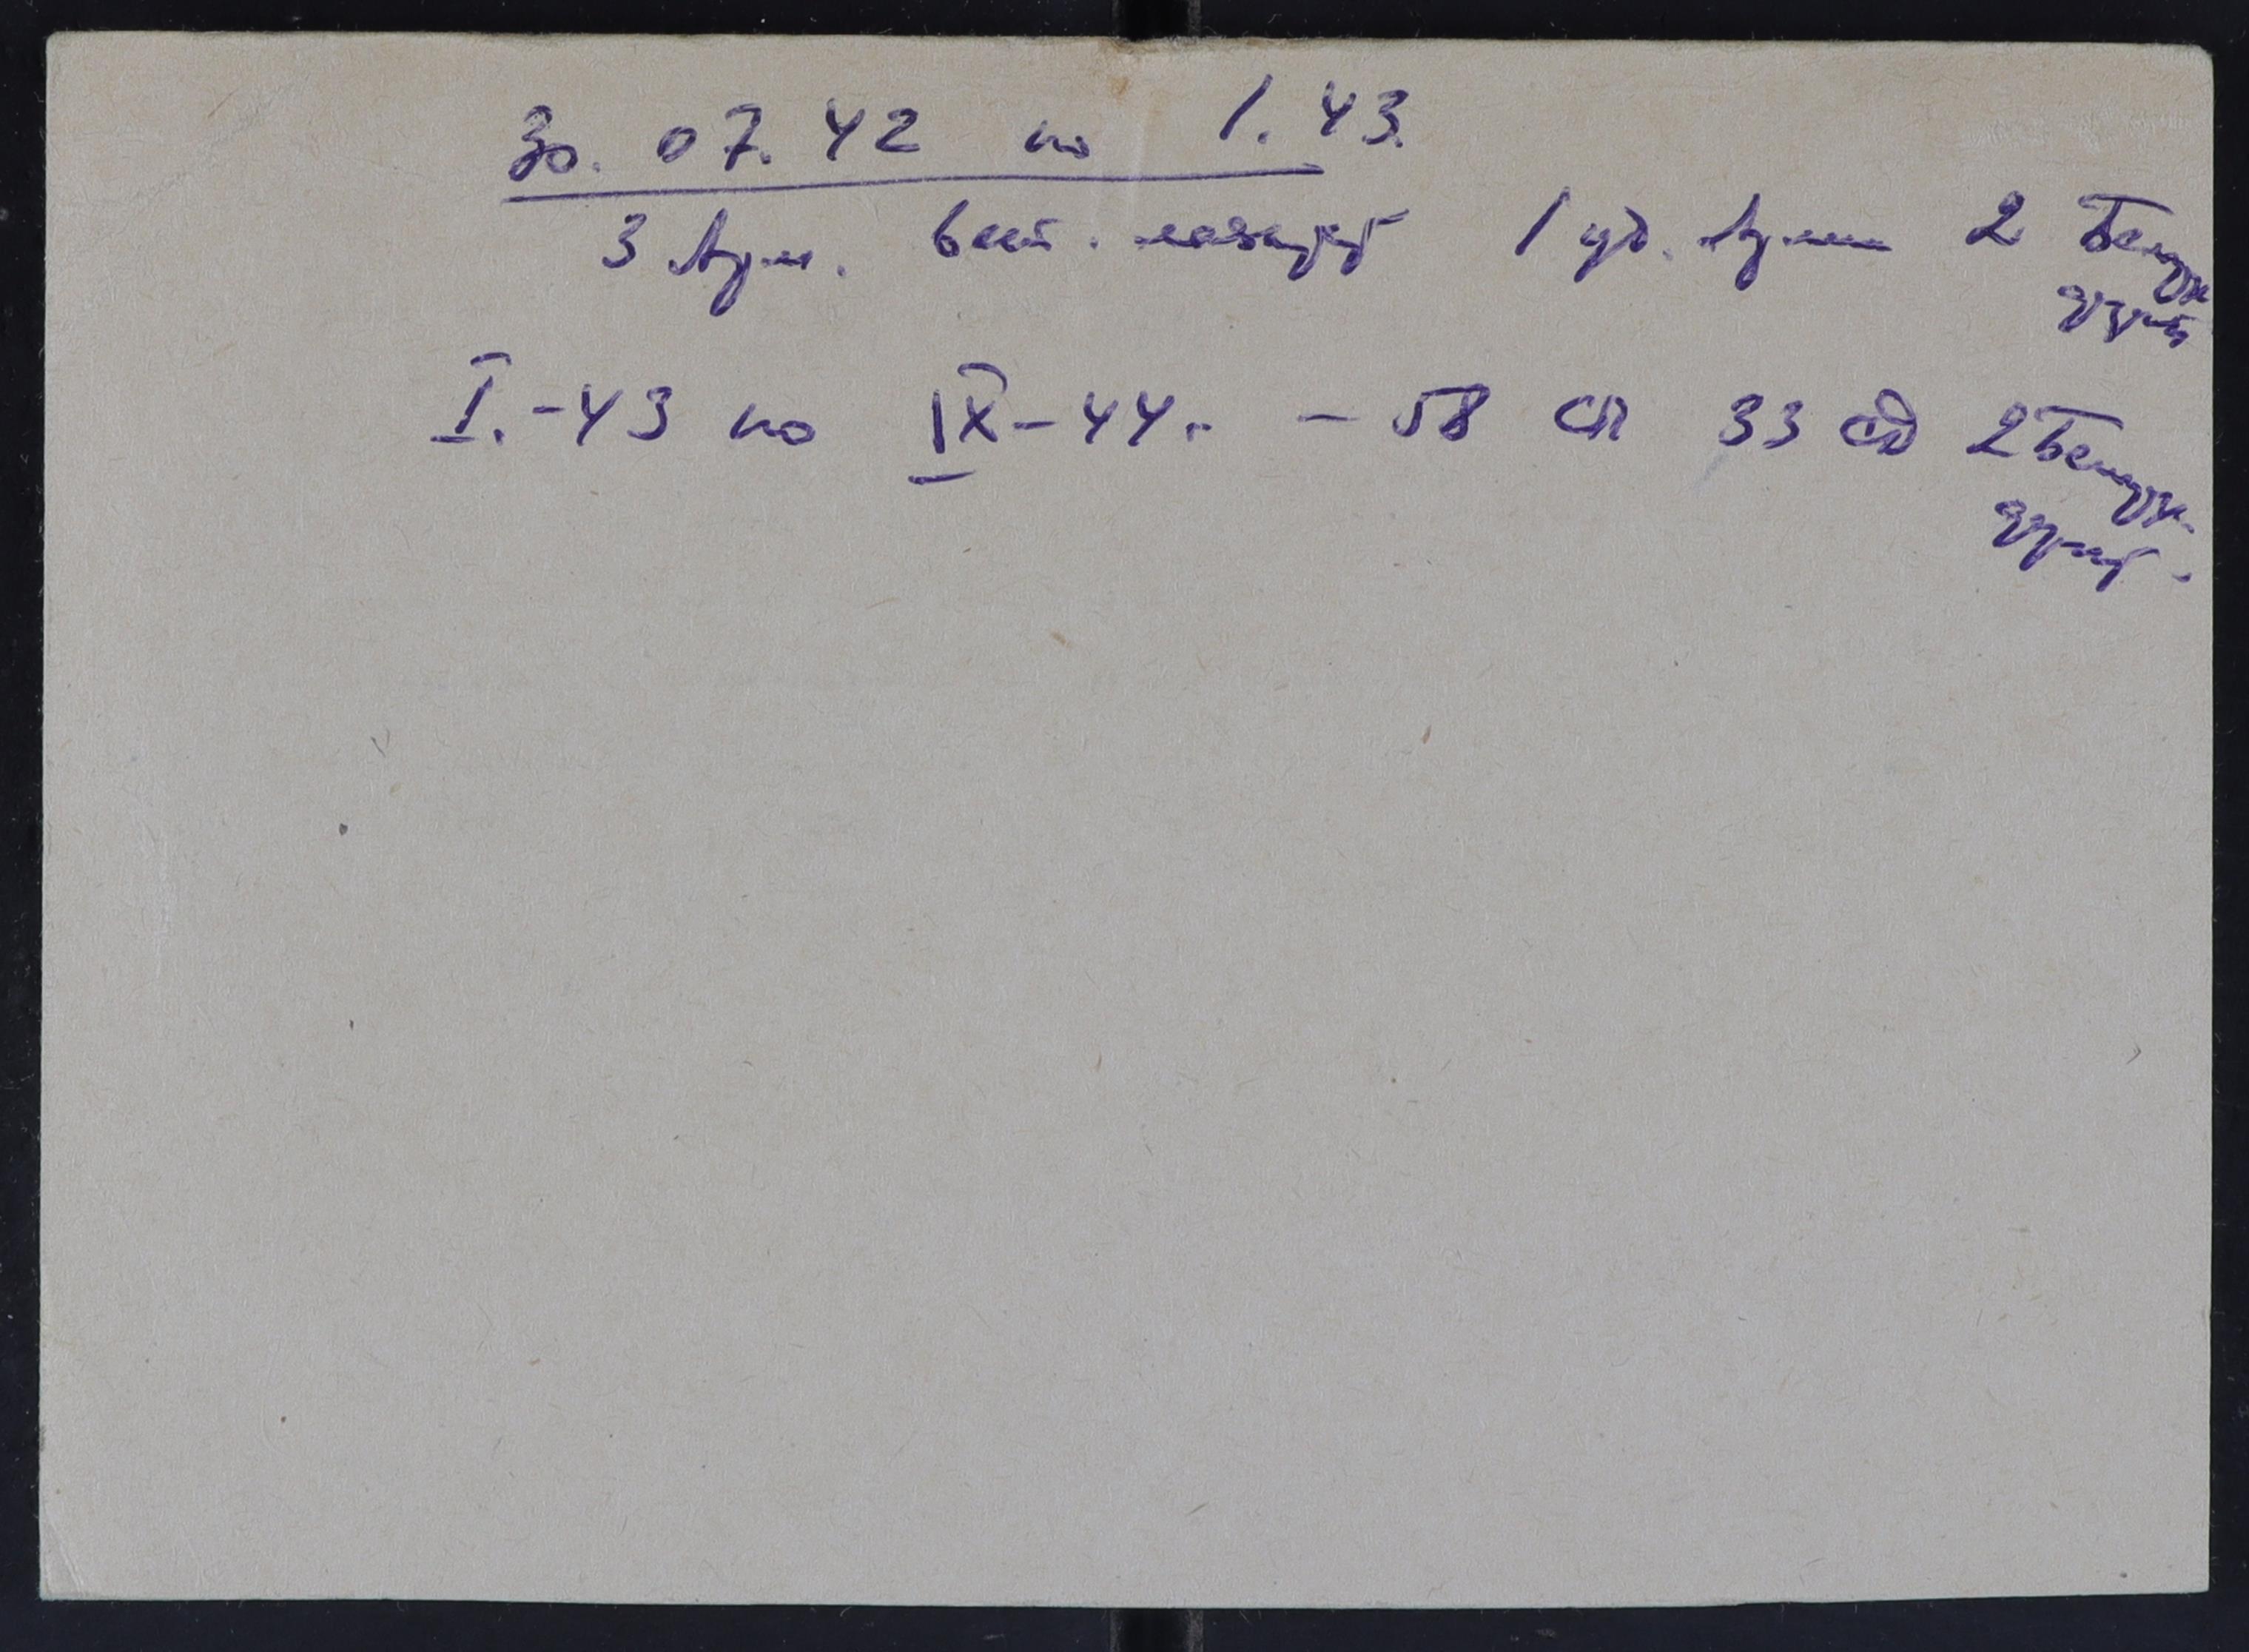 30. 07. 42 по 1. 43.
3 Арм. вет. лазарет 1 уд. Армии 2 Белорус
фронт
I. - 43 по IX - 44. - 58 сп 33 сд 2 Белорус.
фронт.